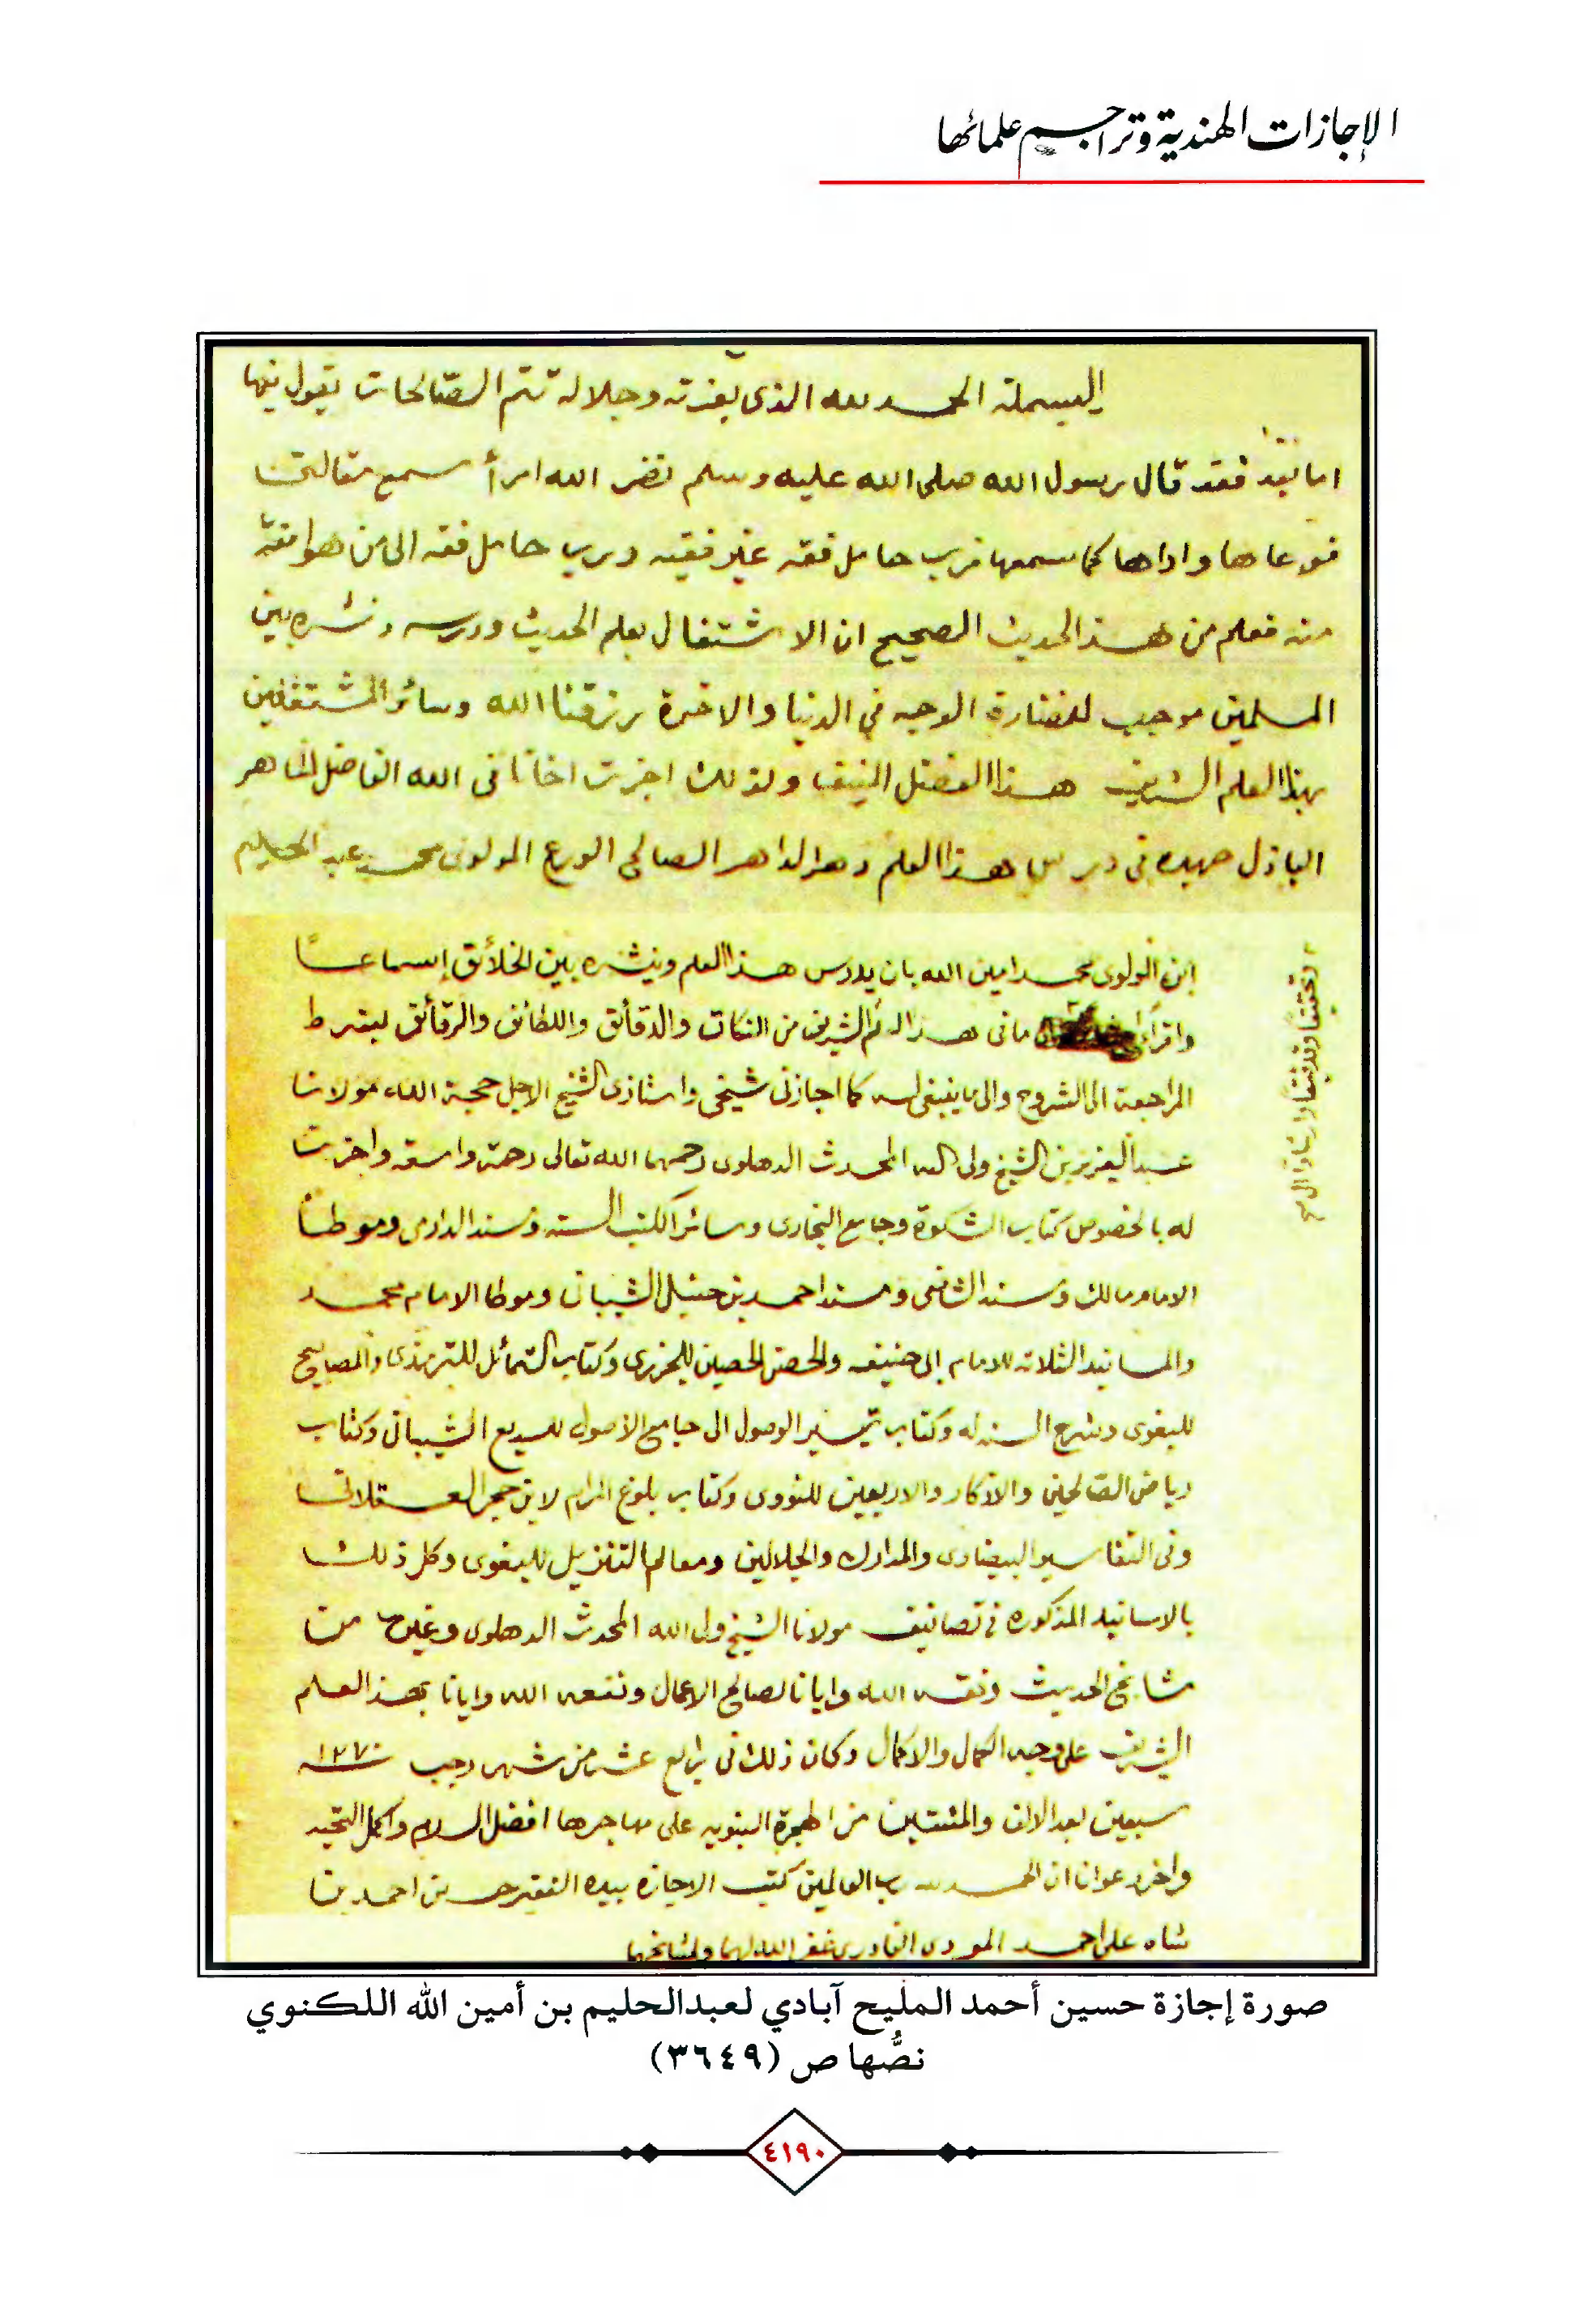 الإجازات الهندية وتراجم علمائها
البسملة الحمد لله الذى بعزته وجلاله تتم الصّالحات يقول فيها
اما بعد فقد قال رسول الله صلى الله عليه وسلم نضر الله امرأ سمع مقالتى
فوعاها واداها كما سمعها فرب حامل فقه غير فقيه ورب حامل فقه الى من هو افقه
منه فعلم من هذا الحديث الصحيح ان الاشتغال بعلم الحديث ودرسه ونشره بين
المسلمين موجب لنضارة الوجه في الدنيا والاخرة رزقنا الله وسائر المشتغلين
بهذا العلم الشريف هذا الفضل المنيف ولذلك اجزت اخانا فى الله الفاضل الماهر
الباذل جهده فى درس هذا العلم الصالح الورع المولوى محمد عبد الحليم
ابن المولوى محمد امين الله بان يدرس هذا العلم وينشره بين الخلائق إسماعًا
واقراء ما فى هذا العلم الشريف من النكات والدقائق واللطائف والرقائق بشرط
المراجعة الى الشروح والى ما ينبغى له كما اجازنى شيخى واستاذى الشيخ الاجل حجة الله مولانا
عبد العزيز بن الشيخ ولى الله المحدث الدهلوى رحمهما الله تعالى رحمة واسعة واجزت
له بالخصوص كتاب المشكوة وجامع البخارى وسائر الكتب الستة ومسند الدارمى وموطأ
الامام مالك ومسند الشافعى ومسند احمد بن حنبل الشيبانى وموطا الامام محمد
والمسانيد الثلاثة للامام ابى حنيفه والحصن الحصين للجزرى وكتاب الشمائل للترمذى والمصابيح
للبغوى وشرح السنه له وكتاب تيسير الوصول الى جامع الأصول للديبع الشيبانى وكتاب
رياض الصالحين والاذكار والاربعين للنووى وكتاب بلوغ المرام لابن حجر العسقلانى
وفى التفاسير البيضاوى والمدارك والجلالين ومعالم التنزيل للبغوى وكل ذلك
بالاسانيد المذكورة فى تصانيف مولانا الشيخ ولى الله المحدث الدهلوى وغيره من
مشايخ الحديث وفقه الله وايانا لصالح الاعمال ونفعه الله وايانا بهذا العلم
الشريف على وجه الكمال والاكمال وكان ذلك فى رابع عشر من شهر رجب ١٢٧٠
سبعين بعد الالف والمئتين من الهجرة النبويه على مهاجرها افضل السلام واكمل التحيه
واخر دعوانا ان الحمد لله رب العالمين كتب الاجازه بيده الفقير حسين احمد بن
شاه على احمد القادرى غفر الله لهما ولمشايخهما
وتحقيقا وتدقيقا
صورة إجازة حسين أحمد المليح آبادي لعبدالحليم بن أمين الله اللكنوي
نصُّها ص (٣٦٤٩)
٤١٩٠